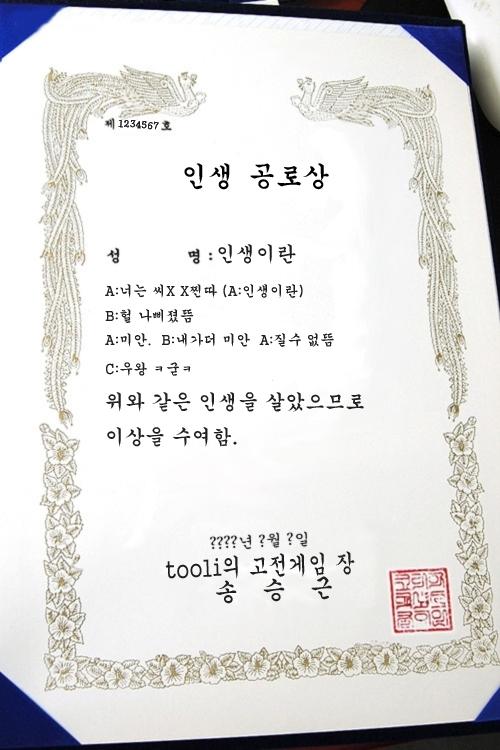 제 1234567 호
인생 공로상
성 명 : 인생이란
A:너는 씨X X찐따 (A:인생이란)
B:헐 나삐졌뜸
A:미안. B:내가더 미안 A:질수 없뜸
C:우왕 ㅋ굳ㅋ
위와 같은 인생을 살았으므로
이상을 수여함.
????년 ?월 ?일
tooli의 고전게임 장
송 승 근